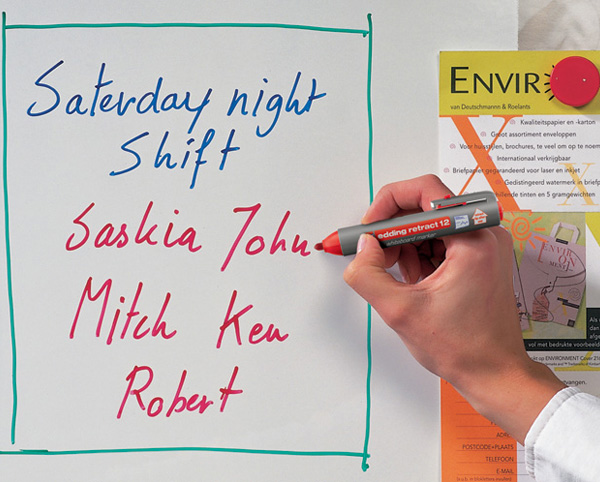 Saterday night
Shift
Saskia John
Mitch Ken
Robert
edding retract 12
whiteboard marker
ENVIR
van Deutschmann & Roelants
Kwaliteitspapier en -karton
Groot assortiment enveloppen
Voor huisstijlen, brochures, te veel om op te noem
Internationaal verkrijgbaar
Briefpapier gegarandeerd voor laser en inkjet
Gedistingeerd watermerk in briefp
illende tinten en 5 gramgewichten
ENVIR
MENT
Als
dan
af
vol met bedrukte voorbeeld
ENVIRONMENT
ntvangen.
ADRE
POSTCODE+PLAATS
TELEFOON
E-MAIL